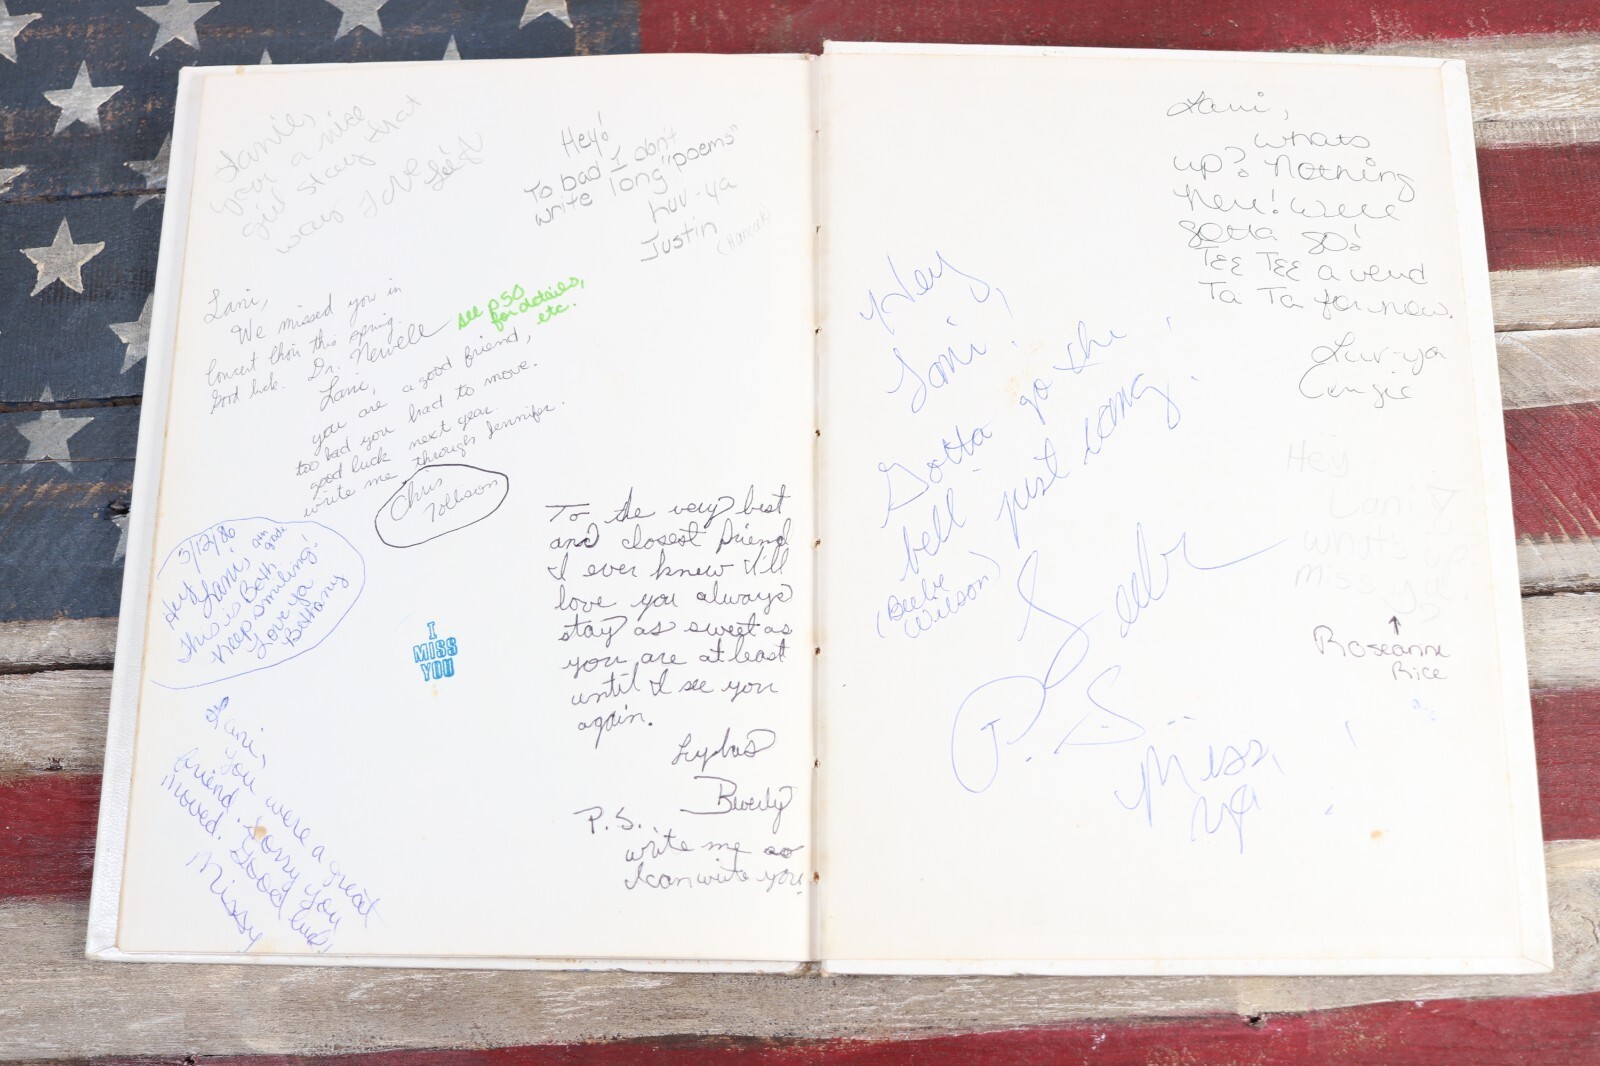 Lanie,
your a nice
girl stay that
way Love
Hey!
To bad I don't
write long "poems"
Luv-ya
Justin
Lani,
We missed you in
Concert Choir this spring.
Good luck. Dr. Newell
see p50
for details,
etc.
Lani,
you are a good friend,
too bad you had to move.
good luck next year.
write me through Jennifer.
Chris
Tollison
5/12/86
Hey Lani,
This is Beth
Keep smiling!
Love ya
Bethany
I
MISS
YOU
To the very best
and closest friend
I ever knew I'll
love you always
stay as sweet as
you are at least
until I see you
again.
Luv
Beverly
P.S.
write me so
I can write you
Lani,
You were a great
friend. Sorry you
moved. Good luck!
Missy
Lani,
whats
up? Nothing
here! Well
gotta go!
TEE TEE a vend
Ta Ta for now.
Luv-ya
Angie
Hey
Lani!
Gotta go the
bell just rang.
(Beebe
Wilson)
P.S.
Miss
ya
Hey
Lani
whats up
miss ya
Roseanne
Rice